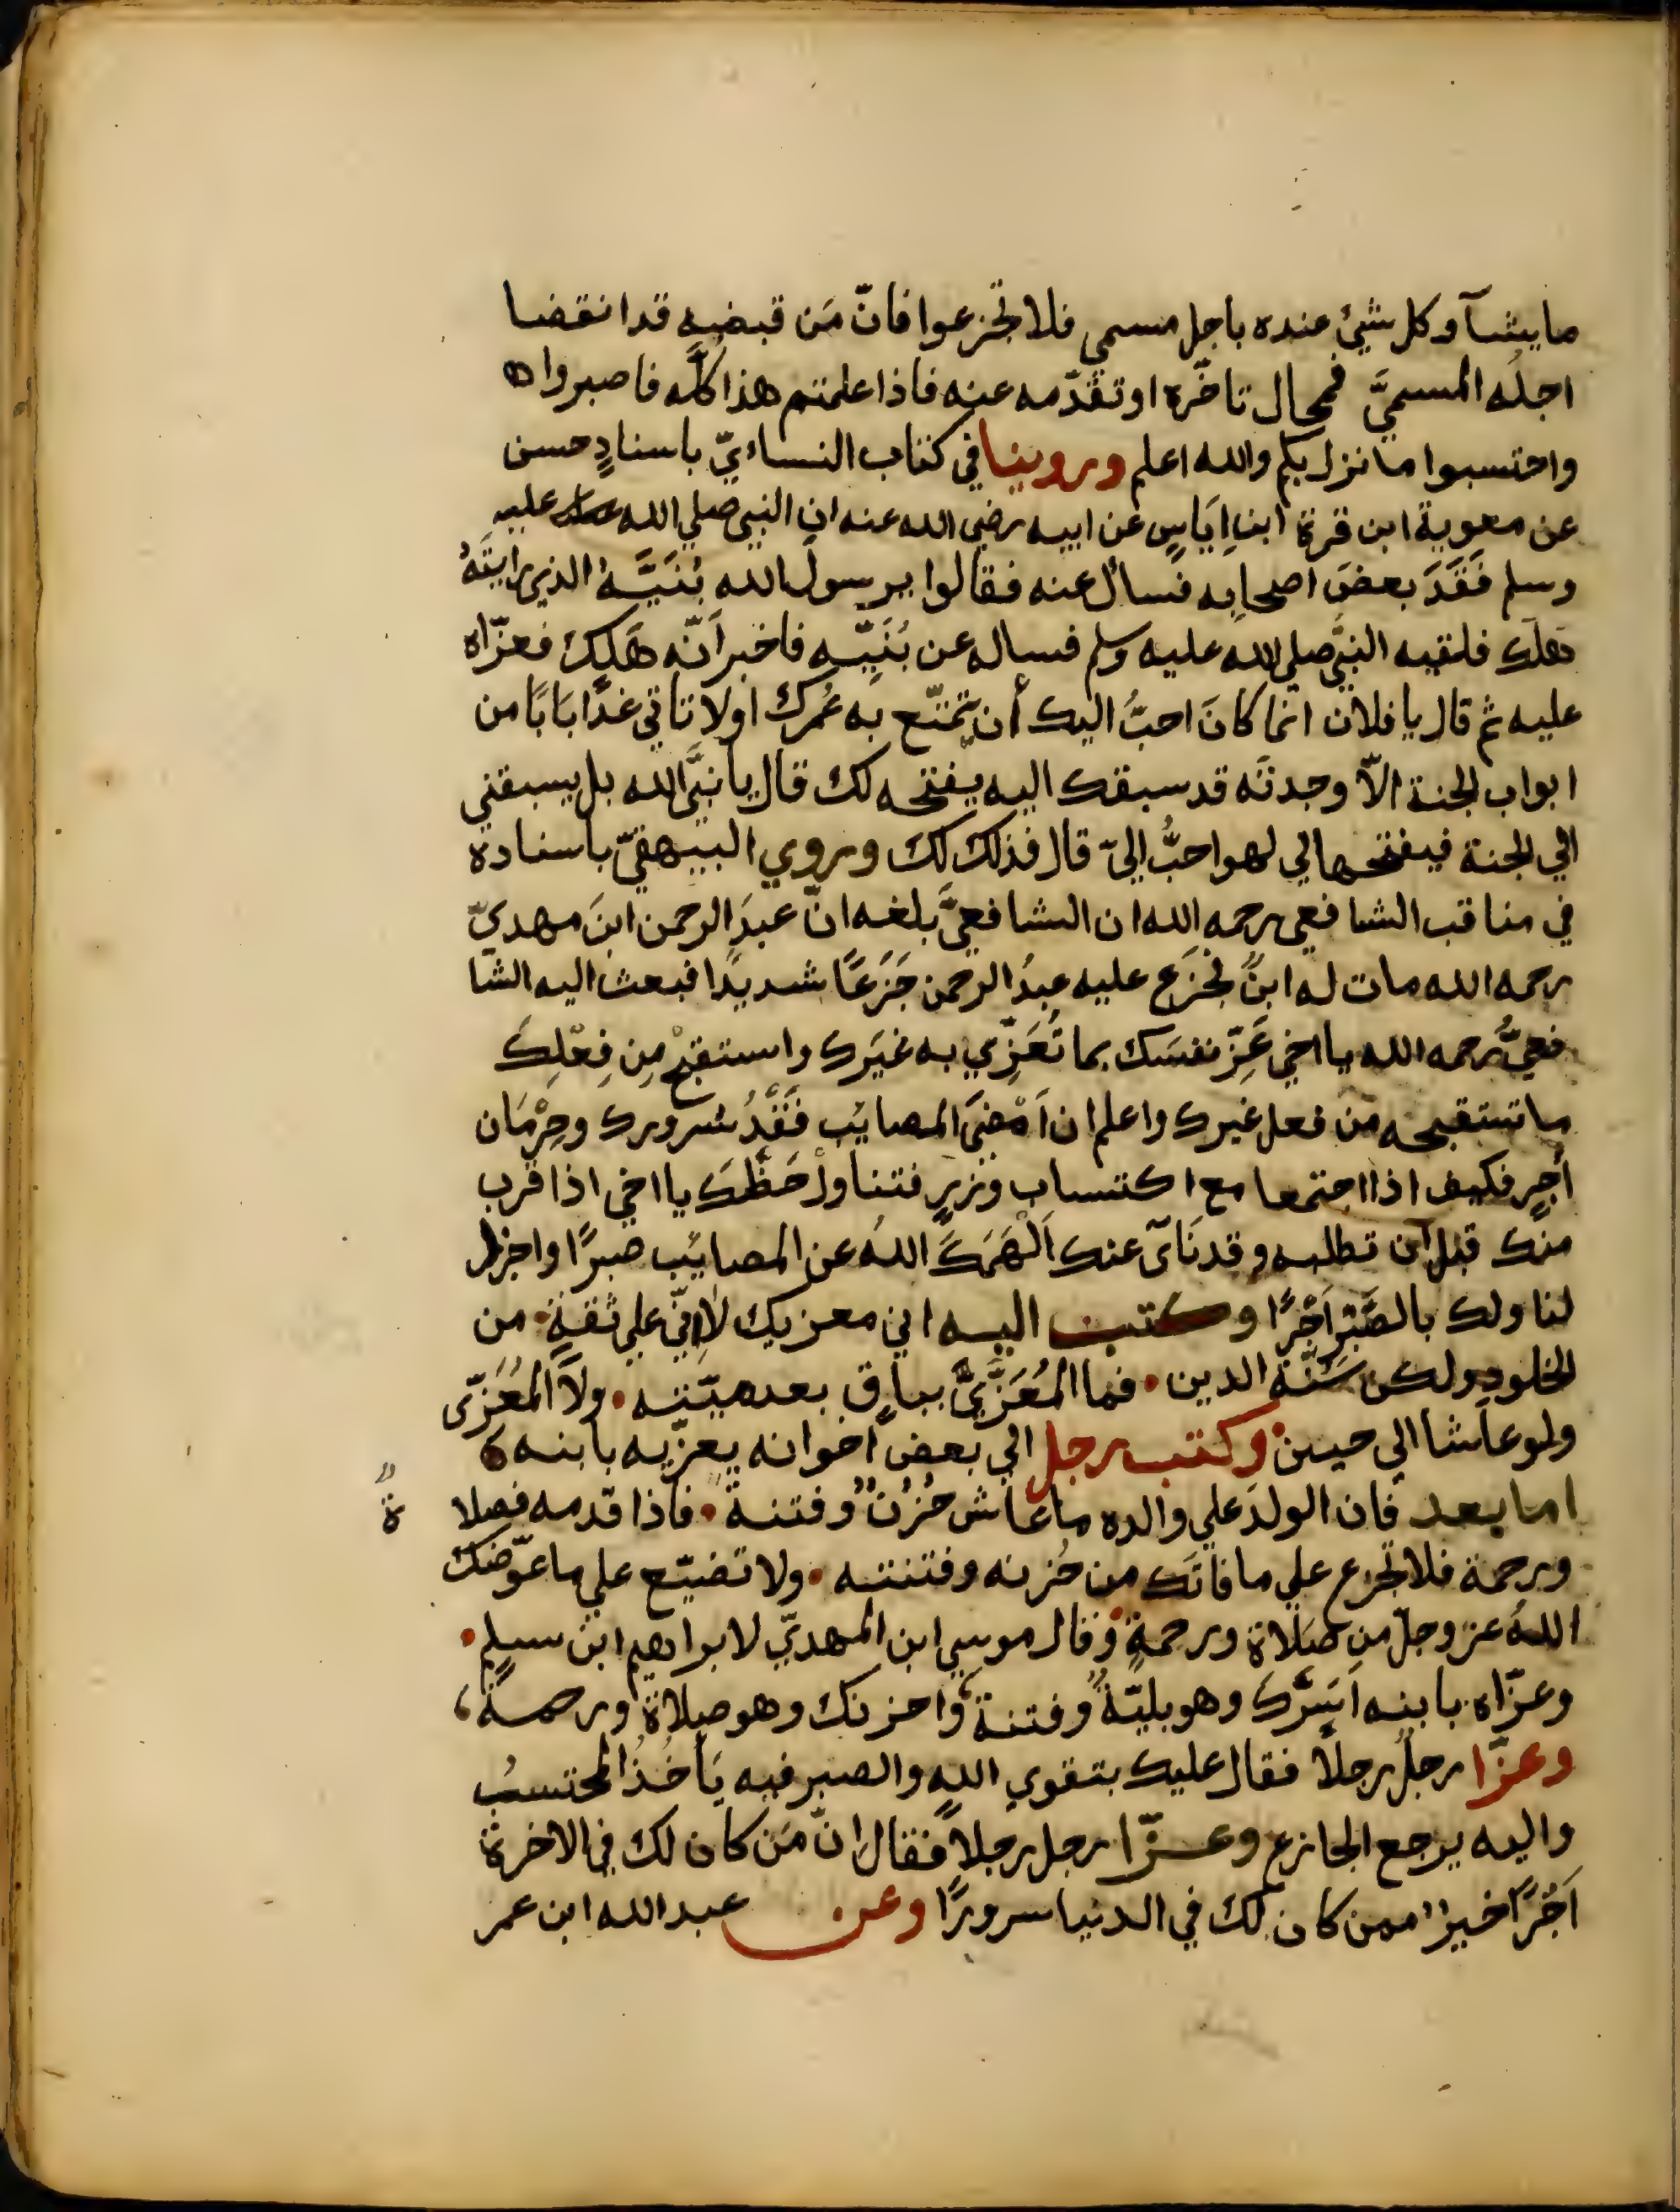 ما يشآ وكل شيئ عنده باجل مسمي فلا تجزعوا فانّ مَن قبضه قد انقضا
اجلُه المسميَّ فمحال تاخّره او تقدّمه عنه فاذا علمتم هذا كلَّه فاصبروا
واحتسبوا ما نزل بكم والله اعلم وروينا في كتاب النساءيّ باسنادٍ حسن
عن معوية ابن قرة ابنِ اِيَاسٍ عن ابيه رضي الله عنه ان النبي صلي الله عليه
وسلم فَقَدَ بعضَ اصحابِه فسال عنه فقالوا يرسول الله بُنَيَّهُ الذي رايتَهُ
هلك فلقيه النبيُّ صلي الله عليه وسلم فساله عن بُنَيِّهِ فاخبر اَنّه هَلَكَ فعزّاه
عليه ثم قال يا فلان انما كانَ احبُّ اليك أن تمتّع به عُمرك اولا تاتي غدًا بَابًا من
ابواب الجنة الاّ وجدتَه قد سبقك اليه يفتحه لك قال يا نبيَّ الله بل يسبقني
الي الجنة فيفتحها لي لهو احبُّ اليّ قال فذلك لك وروي البيهقيّ باسناده
في مناقب الشافعي رحمه الله ان الشافعيَّ بلغه انّ عبدَ الرحمن ابنَ مهديّ
رحمه الله مات له ابنٌ فجَزَع عليه عبدُ الرحمن جَزَعًا شديدًا فبعث اليه الشا
فعيُّ رحمه الله يا اخي عَزِّ نفسَك بما تُعَزِّي به غيَرك واستقبِحْ مِن فِعْلِكَ
ما تستقبحه من فعل غيرك واعلم ان اَمْضَي المصائب فَقْدُ سُرورك وحِرْمَان
أجرٍ فكيف اذا اجتمعا مع اكتساب وزرٍ فتناولْ حَظَّكَ يا اخي اذا قرب
منك قبل ان تطلبه وقد نَآي عنك اَلْهَمَكَ اللهُ عن المصائب صبرًا واجزل
لنا ولك بالصَّبْرِ اَجْرًا وكتب اليه اني معزيك لا اِنّي علي ثقةٍ من
الخلودِ ولكن سُنّة الدين فما المُعَزَّيُ بباقٍ بعد ميّته ولا المُعَزّى
ولو عاشا الي حين وكتب رجل الي بعض اخوانه يعزّيه بابنه
اما بعد فان الولدَ علي والده ما عاش حُزنٌ وفتنةٌ فاذا قدمه فصلا
ةٌ
ورحمة فلا تجزع علي ما فاتَك من حُزنه وفتنته ولا تضيّع علي ما عوّضك
اللهُ عز وجلّ من صَلاة ورحمةٍ وقال موسي ابن المهديّ لابراهيم ابن سلم
وعزّاه بابنه اَيَسُرُّكَ وهو بليّةٌ وفتنةٌ واحزنك وهو صلاةٌ ورحمةٌ
وعزّا رجلٌ رجلاً فقال عليك بتقوي اللهِ والصبر فبه يَأخُذُ المحتسبُ
واليه يرجع الجازع وعزّا رجل رجلاً فقال انّ مَن كان لك في الاخرة
اَجْرًا خير ممن كان لك في الدنيا سرورًا وعن عبد الله ابن عمر